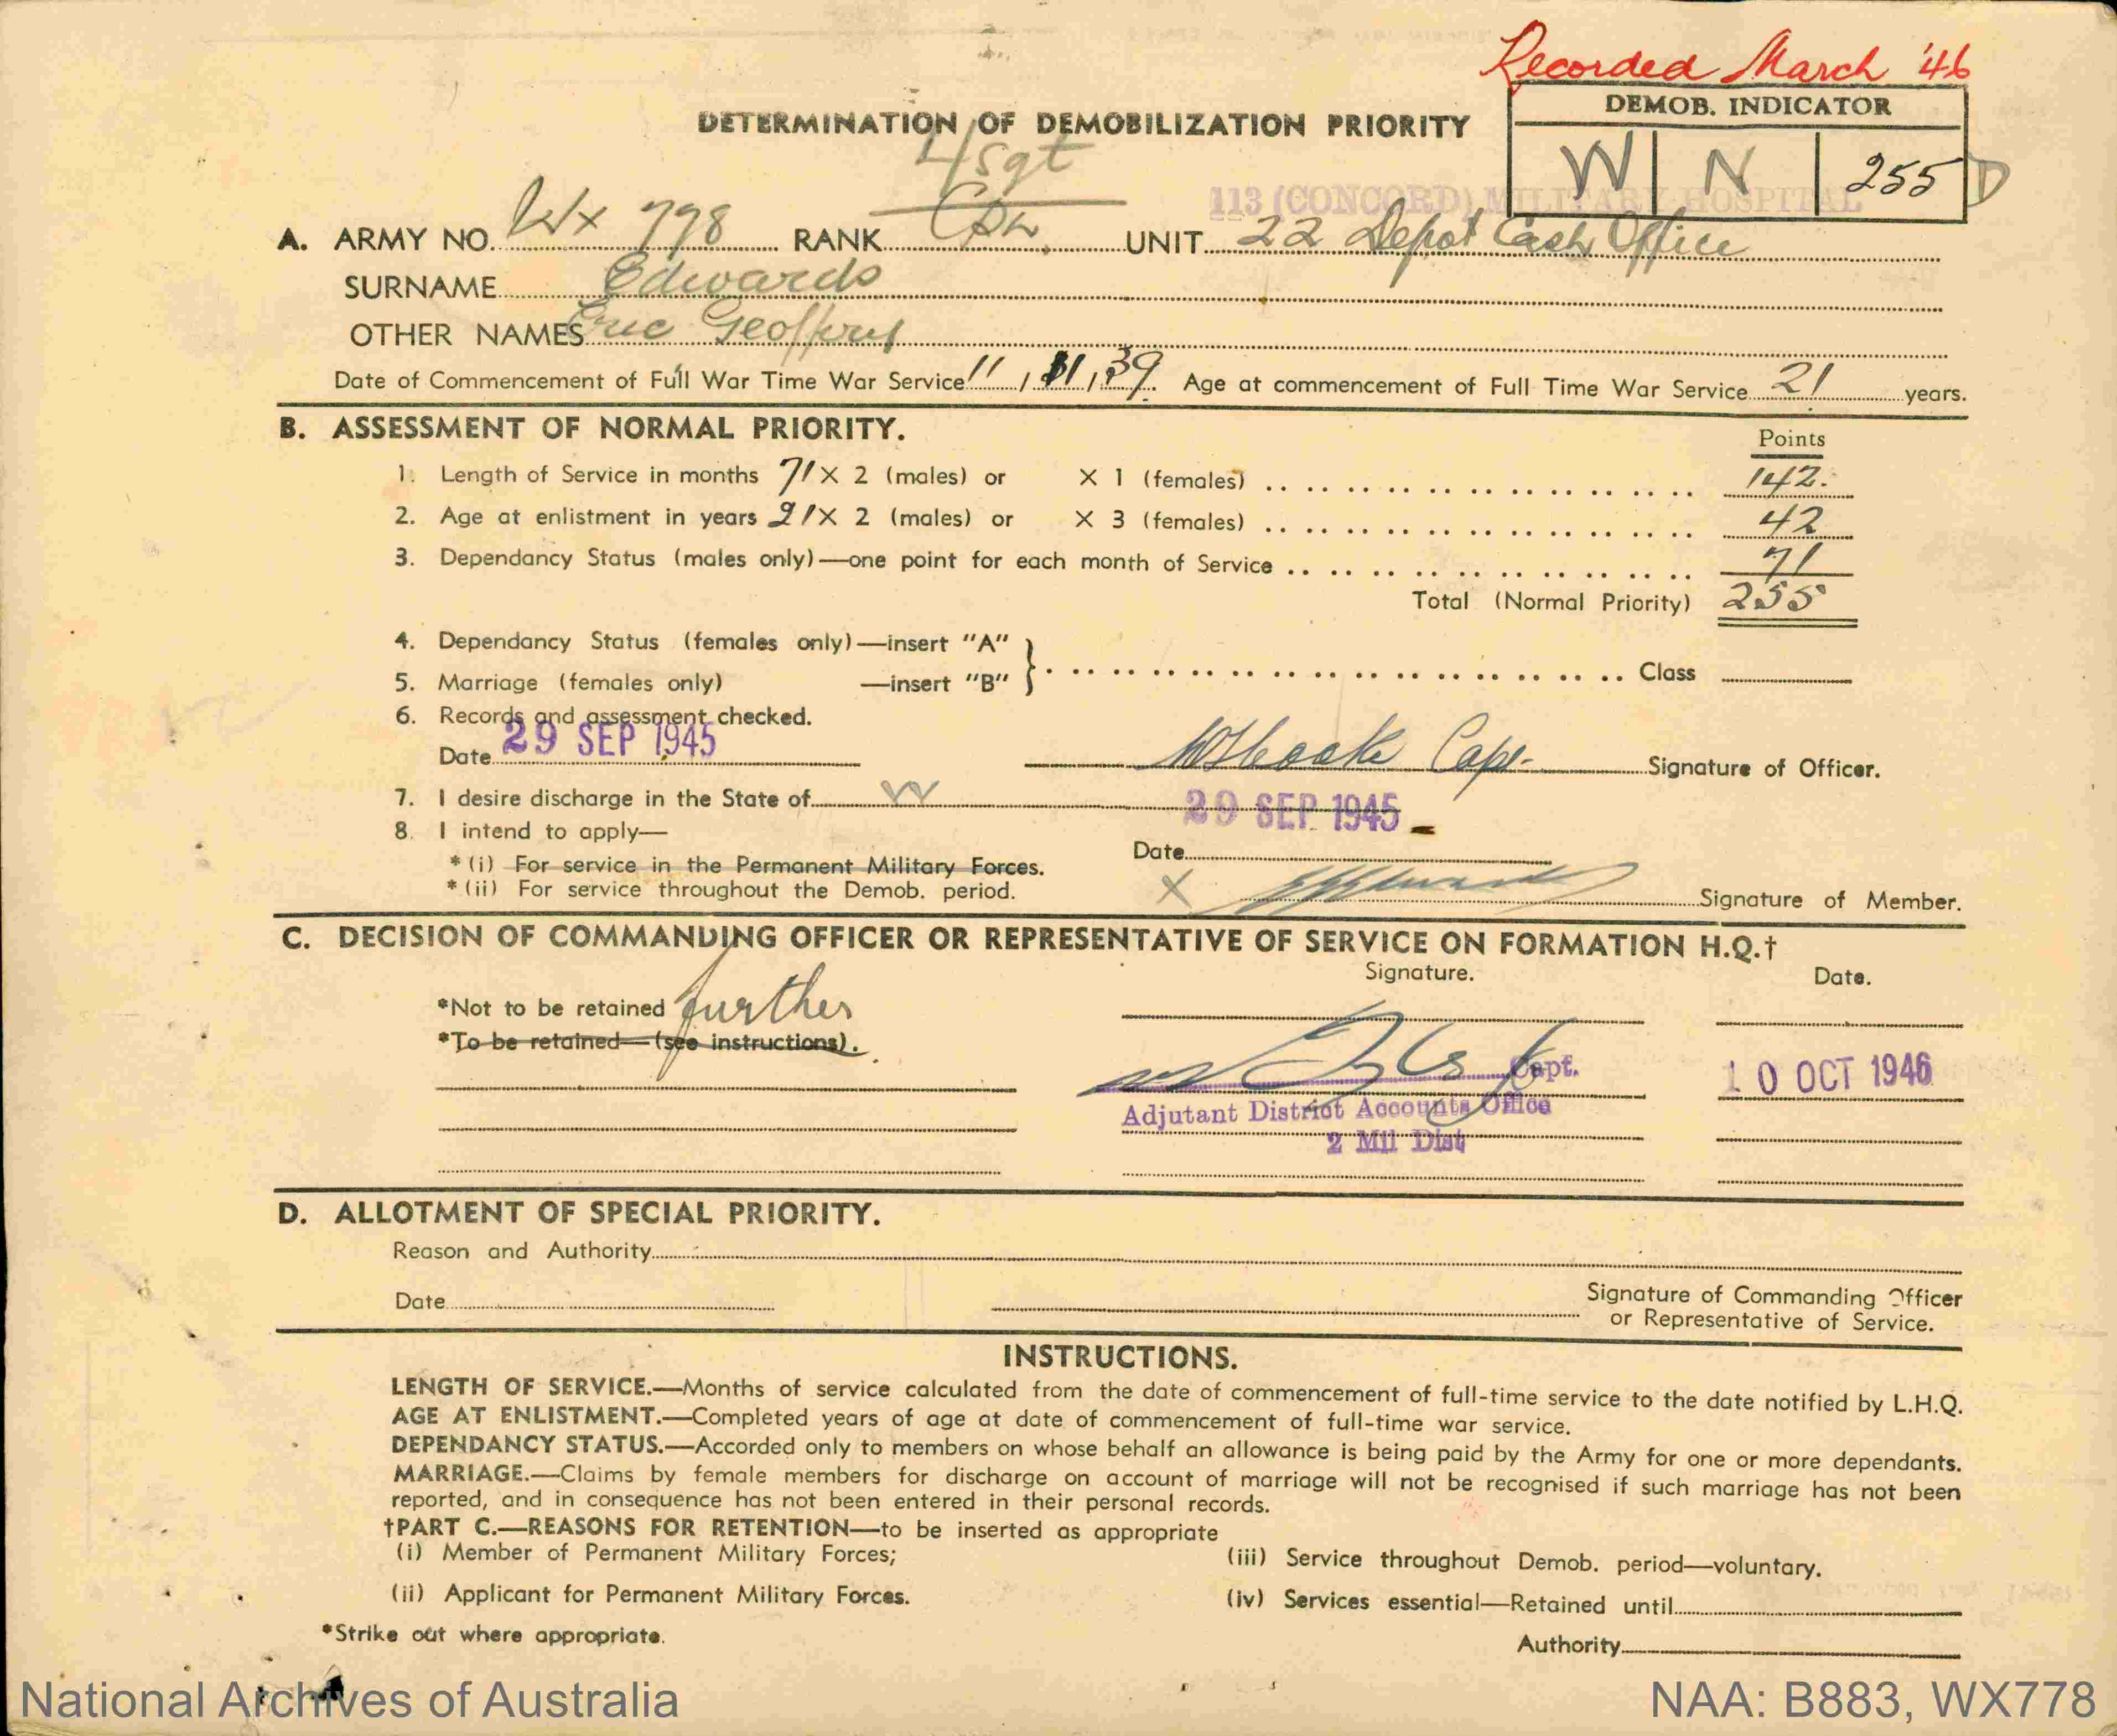 Recorded March '46
DEMOB. INDICATOR
W N 255 D
DETERMINATION OF DEMOBILIZATION PRIORITY
L/Sgt
113 (CONCORD) MILITARY HOSPITAL
A. ARMY NO. WX 778 RANK Cpl. UNIT 22 Depot Cash Office
SURNAME Edwards
OTHER NAMES Eric Geoffrey
Date of Commencement of Full War Time War Service 11, 11, 39. Age at commencement of Full Time War Service 21 years.
B. ASSESSMENT OF NORMAL PRIORITY.
Points
1. Length of Service in months 71 × 2 (males) or × 1 (females) 142.
2. Age at enlistment in years 21 × 2 (males) or × 3 (females) 42
3. Dependancy Status (males only)—one point for each month of Service 71
Total (Normal Priority) 255
4. Dependancy Status (females only)—insert "A"
5. Marriage (females only) —insert "B" Class
6. Records and assessment checked.
Date 29 SEP 1945 Capt. Signature of Officer.
7. I desire discharge in the State of W
29 SEP 1945
8. I intend to apply—
Date
*(i) For service in the Permanent Military Forces.
*(ii) For service throughout the Demob. period. X Signature of Member.
C. DECISION OF COMMANDING OFFICER OR REPRESENTATIVE OF SERVICE ON FORMATION H.Q.†
Signature. Date.
*Not to be retained further
*To be retained—(see instructions).
Capt. 10 OCT 1946
Adjutant District Accounts Office
2 Mil Dist
D. ALLOTMENT OF SPECIAL PRIORITY.
Reason and Authority
Date Signature of Commanding Officer
or Representative of Service.
INSTRUCTIONS.
LENGTH OF SERVICE.—Months of service calculated from the date of commencement of full-time service to the date notified by L.H.Q.
AGE AT ENLISTMENT.—Completed years of age at date of commencement of full-time war service.
DEPENDANCY STATUS.—Accorded only to members on whose behalf an allowance is being paid by the Army for one or more dependants.
MARRIAGE.—Claims by female members for discharge on account of marriage will not be recognised if such marriage has not been
reported, and in consequence has not been entered in their personal records.
†PART C.—REASONS FOR RETENTION—to be inserted as appropriate
(i) Member of Permanent Military Forces; (iii) Service throughout Demob. period—voluntary.
(ii) Applicant for Permanent Military Forces. (iv) Services essential—Retained until
*Strike out where appropriate. Authority
National Archives of Australia NAA: B883, WX778